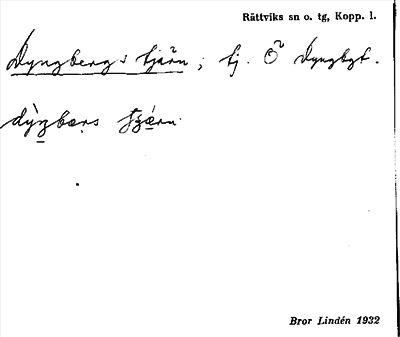 Rättviks sn o. tg, Kopp. l.
Dyngbergstjärn, tj. Ö Dyngbgt.
Bror Lindén 1932